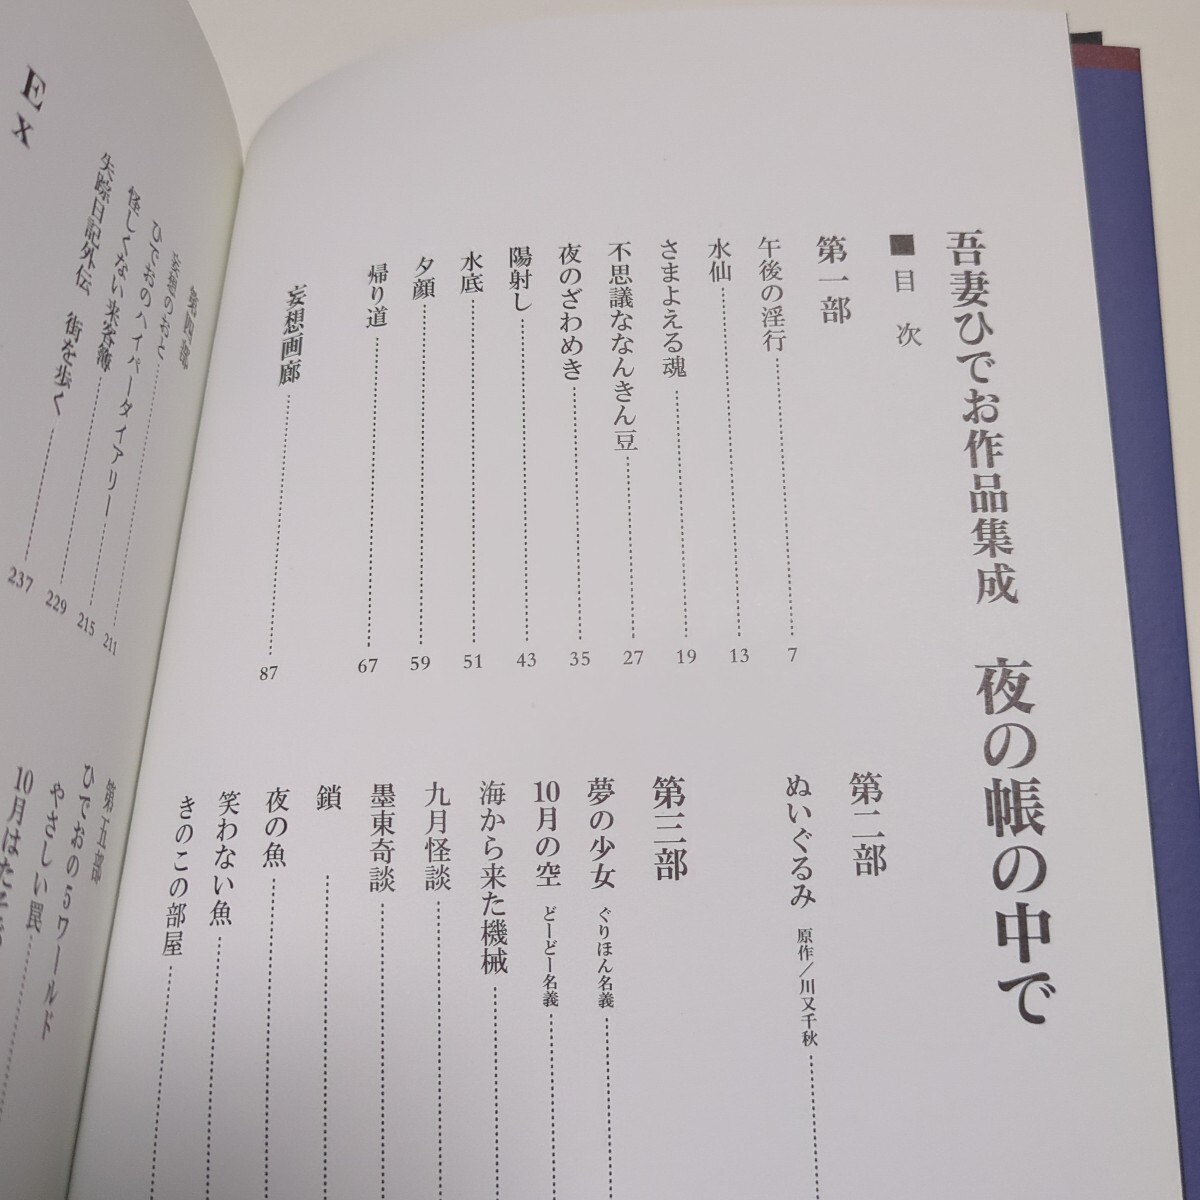 吾妻ひでお作品集成　夜の帳の中で
■目次
第一部
午後の淫行 7
水仙 13
さまよえる魂 19
不思議ななんきん豆 27
夜のざわめき 35
陽射し 43
水底 51
夕顔 59
帰り道 67
妄想画廊 87
第二部
ぬいぐるみ 原作／川又千秋
第三部
夢の少女 ぐりほん名義
10月の空 どーどー名義
海から来た機械
九月怪談
墨東奇談
鎖
夜の魚
笑わない魚
きのこの部屋
第四部
妄想のおと 211
ひでおのハイパータイアリー 215
怪しくない来客簿 229
失踪日記外伝　街を歩く 237
第五部
ひでおの5ワールド
やさしい罠
10月はた
Ex